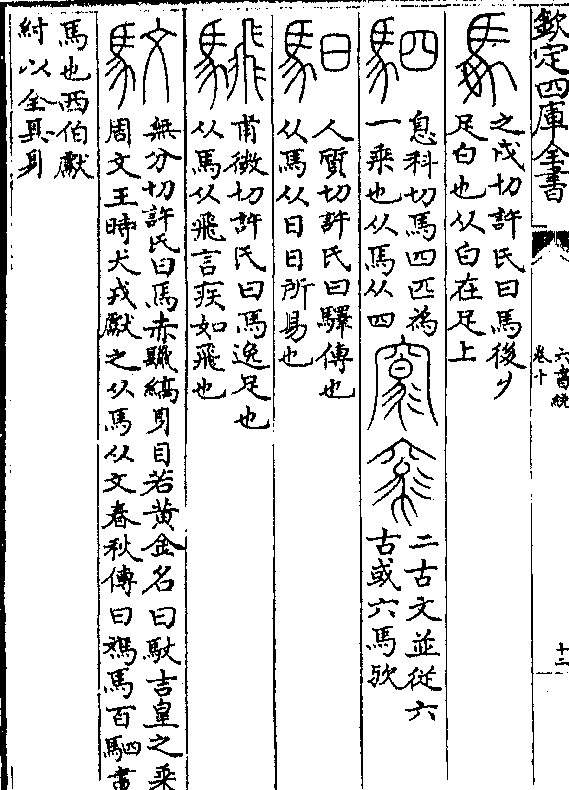 欽定四庫全書
六書統
卷十
十二
之戍切許氏曰馬後𠂇
足白也从白在足上
息科切馬四匹為
一乘也从馬从四
二古文並從六
古或六馬歟
人質切許氏曰驛傳也
从馬从日日所易也
甫微切許氏曰馬逸足也
从馬从飛言疾如飛也
無分切許氏曰馬赤鬛縞身目若黃金名曰馼吉皇之乘
周文王時犬戎獻之从馬从文春秋傳曰𩡺馬百駟畫
馬也西伯獻
紂以全其身